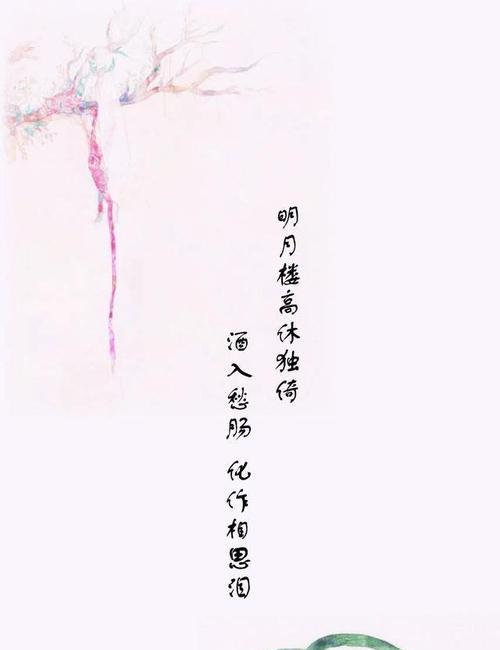 明月楼高休独倚
酒入愁肠 化作相思泪